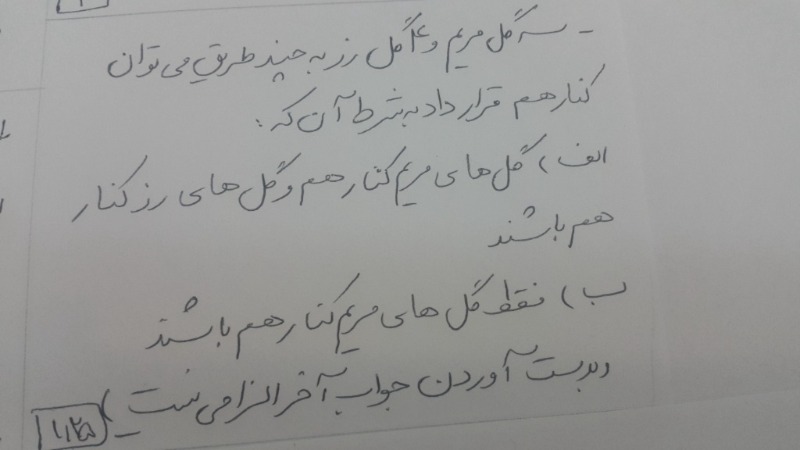 - سه گل مریم و ۴ گل رز به چند طریق می توان
کنار هم قرار داد به شرط آن که :
الف) گل های مریم کنار هم و گل های رز کنار
هم باشند
ب) فقط گل های مریم کنار هم باشند
(بدست آوردن جواب آخر الزامی نیست)
۱/۲۵